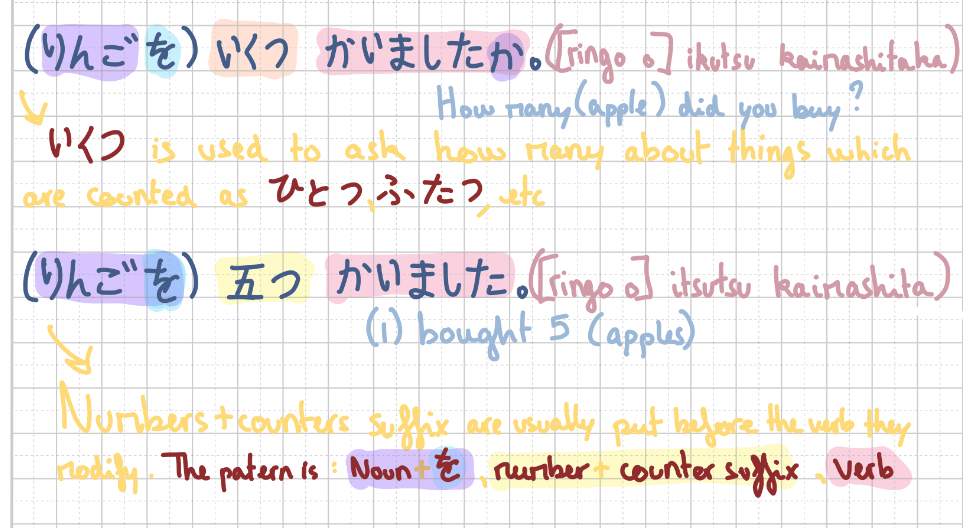 (りんごを) いくつ かいましたか。([ringo o] ikutsu kaimashitaka)
How many (apple) did you buy?
いくつ is used to ask how many about things which
are counted as ひとつ, ふたつ, etc
(りんごを) 五つ かいました。([ringo o] itsutsu kaimashita)
(i) bought 5 (apples)
Numbers + counters suffix are usually put before the verb they
modify. The patern is : Noun + を, number + counter suffix, Verb